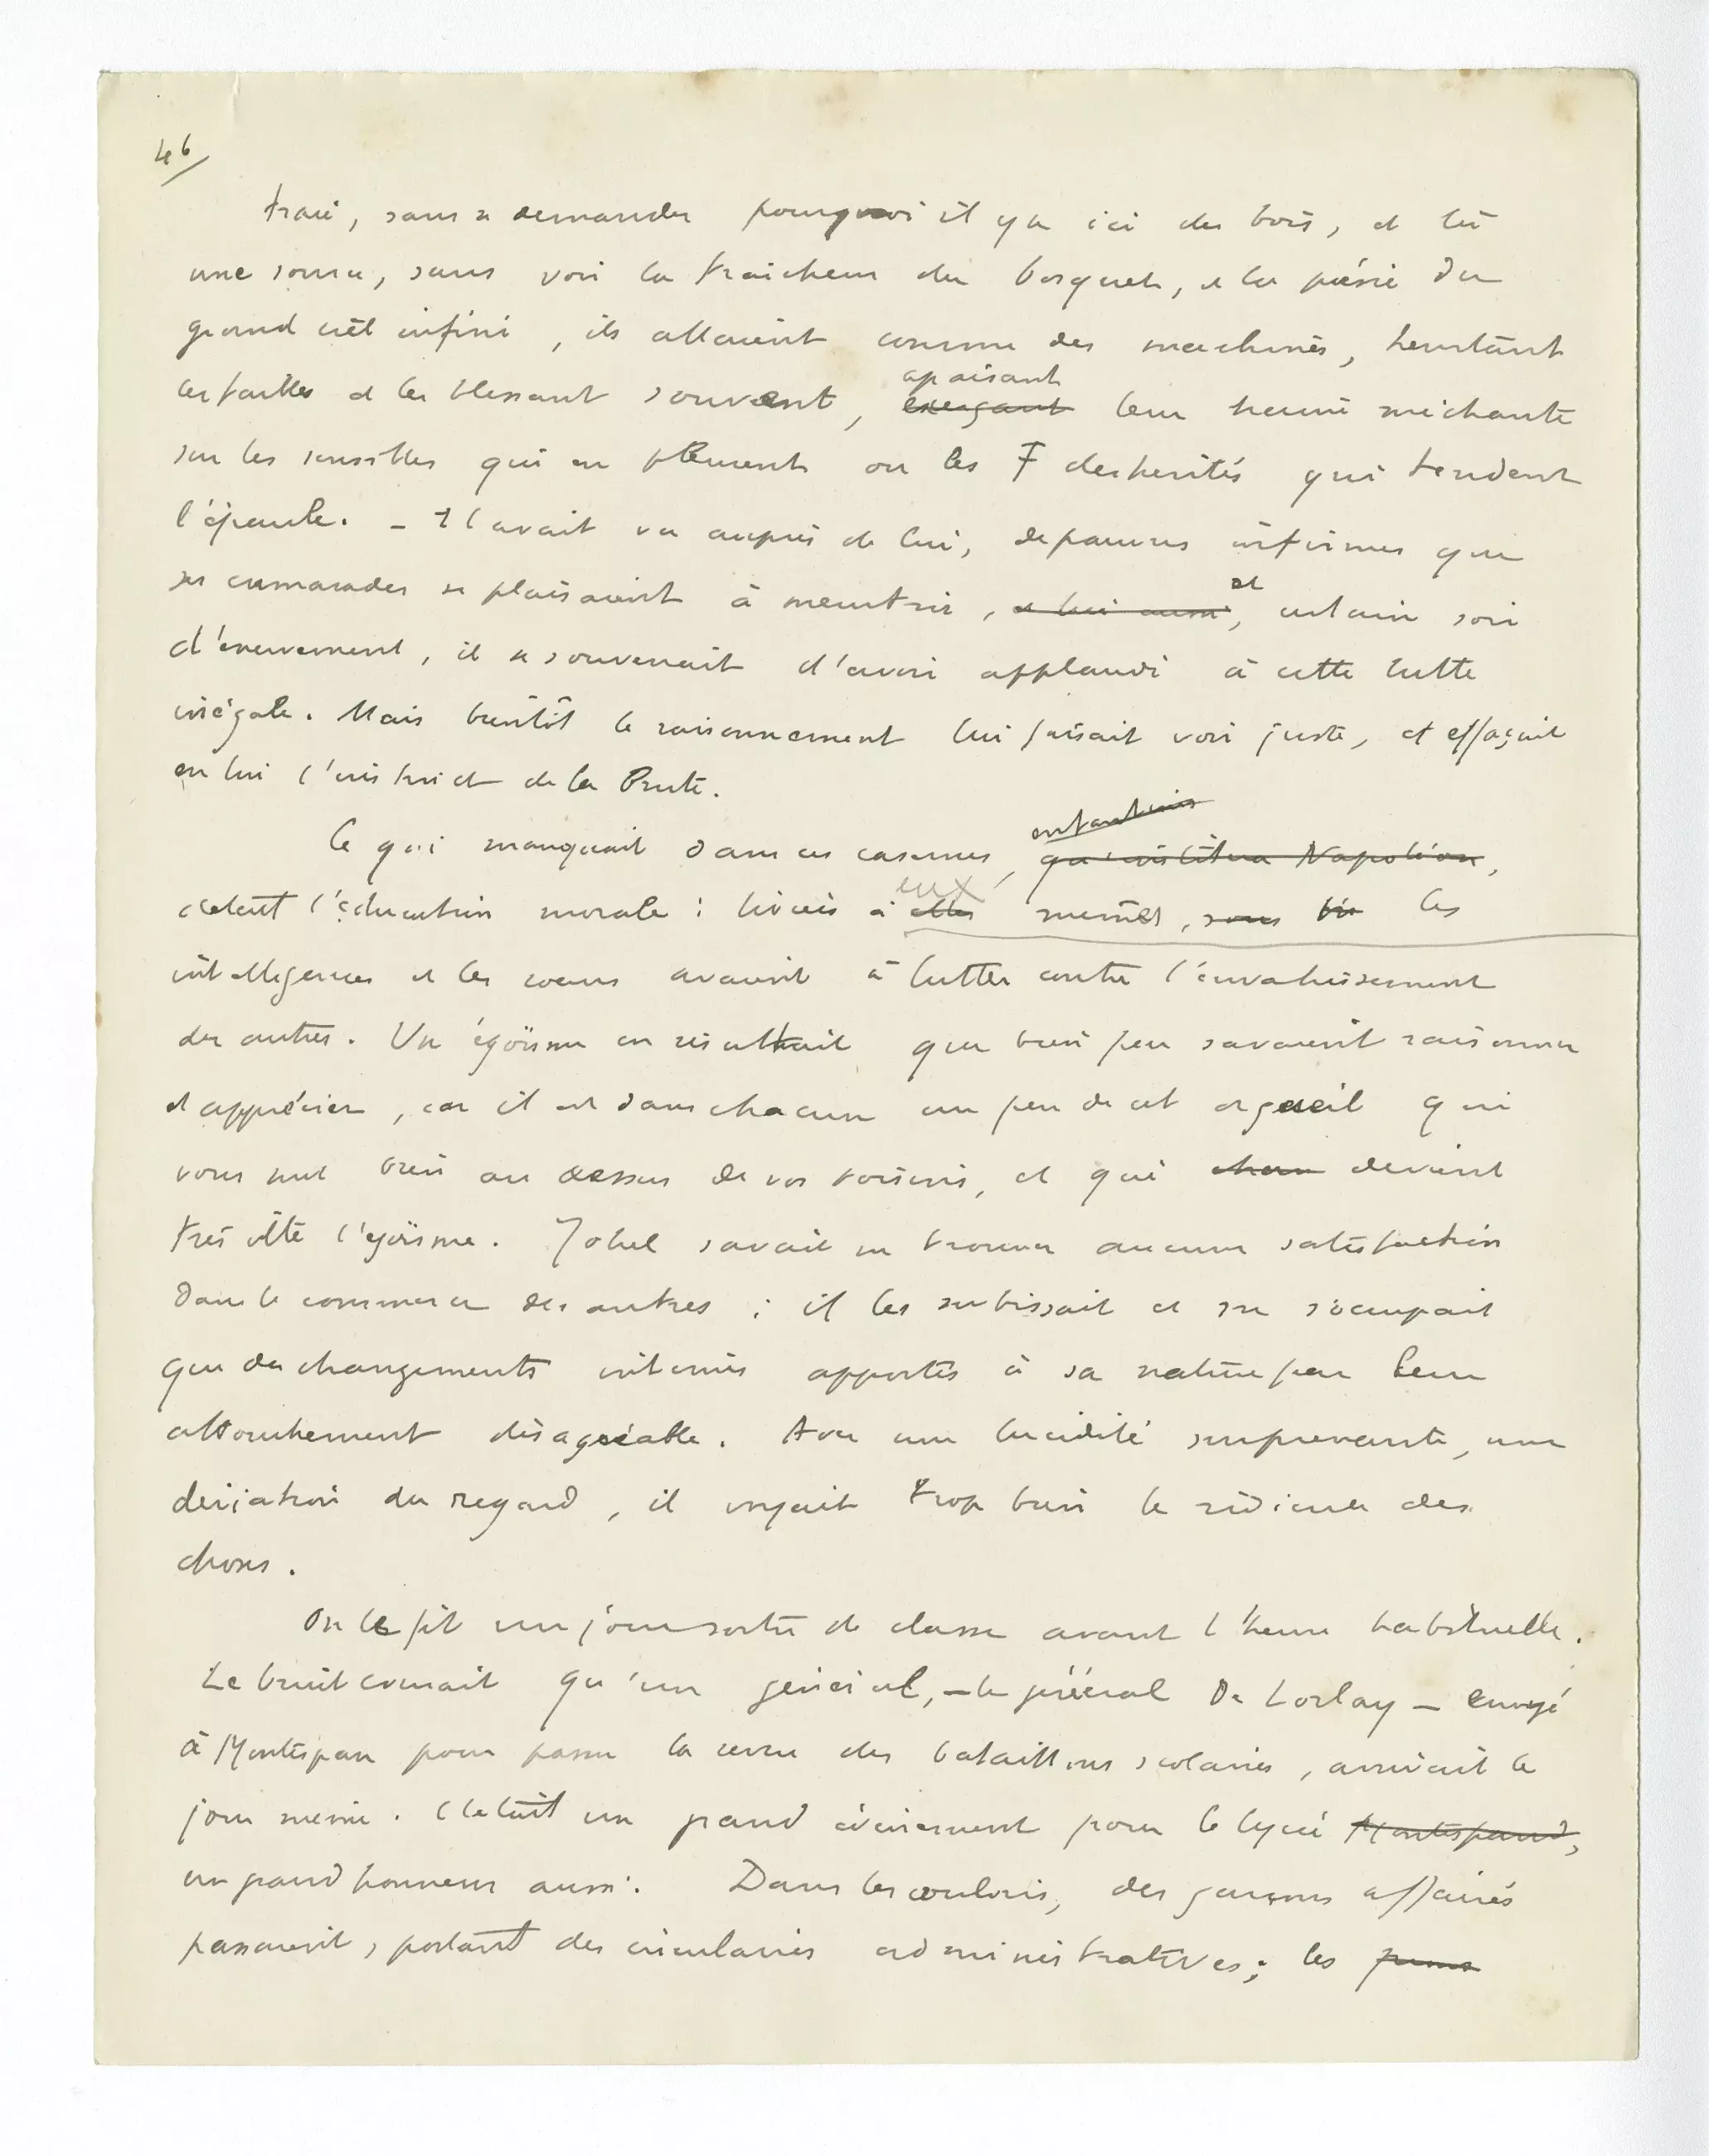 46/
tracé, sans se demander pourquoi il y a ici des bois, et là
une source, sans voir la fraicheur des bosquets, et la poésie du
grand ciel infini, ils allaient comme des machines, heurtant
les faibles et les blessant souvent, ~~exerçant~~ apaisant leur haine méchante
sur les sensibles qui en pleurent ou les déshérités qui tendent
l'épaule. — Il avait vu auprès de lui, de pauvres infirmes que
ses camarades se plaisaient à meurtrir, ~~et lui aussi~~, et certain soir
d'énervement, il se souvenait d'avoir applaudi à cette lutte
inégale. Mais bientôt le raisonnement lui faisait voir juste, et effaçait
en lui l'instinct de la Brute.
Ce qui manquait dans ces casernes, ~~enfantines~~ ~~qu'institua Napoléon~~,
c'etait l'éducation morale : livrés à ~~elles~~ eux mêmes, ~~sous~~ les
intelligences et les coeurs avaient à lutter contre l'envahissement
des autres. Un égoïsme en résultait que bien peu savaient raisonner
et apprécier, car il est dans chacun un peu de cet orgueil qui
vous met bien au dessus de vos voisins, et qui devient
très vite l'égoïsme. Johel savait ne trouver aucune satisfaction
dans le commerce des autres ; il les subissait et ne s'occupait
que des changements internes apportés à sa nature par leur
attouchement désagréable. Avec une lucidité surprenante, une
déviation du regard, il voyait trop bien le ridicule des
choses.
On le fit un jour sortir de classe avant l'heure habituelle.
Le bruit courait qu'un général, — le général De Lorlay — envoyé
à Montespan pour passer la revue des bataillons scolaires, arrivait le
jour même. C'etait un grand évènement pour le lycée ~~Montespand~~,
un grand honneur aussi. Dans les couloirs, des garçons affairés
passaient, portant des circulaires administratives ; les